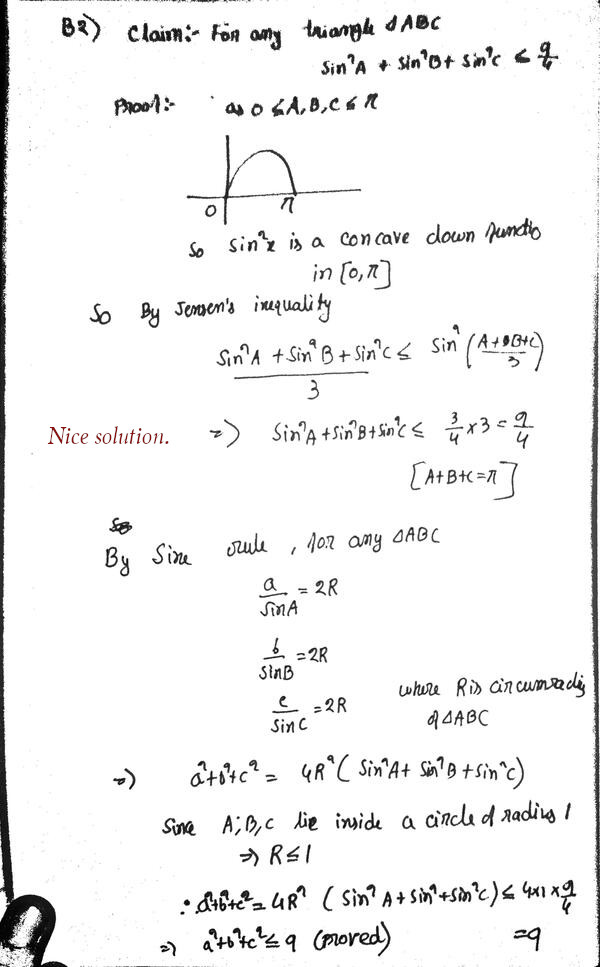 B2) Claim:- For any triangle ΔABC
sin²A + sin²B + sin²C ≤ 9/4
Proof:- as 0 ≤ A, B, C ≤ π
0 π
So sin²x is a concave down functio
in [0, π]
So By Jensen's inequality
(sin²A + sin²B + sin²C)/3 ≤ sin²((A+B+C)/3)
Nice solution. => sin²A + sin²B + sin²C ≤ 3/4 × 3 = 9/4
[A+B+C = π]
By Sine rule, for any ΔABC
a/sinA = 2R
b/sinB = 2R
c/sinC = 2R where R is circumradius
of ΔABC
=> a²+b²+c² = 4R² (sin²A + sin²B + sin²C)
Since A, B, C lie inside a circle of radius 1
=> R ≤ 1
∴ a²+b²+c² = 4R² (sin²A + sin² + sin²C) ≤ 4×1×9/4
=> a²+b²+c² ≤ 9 (proved) = 9